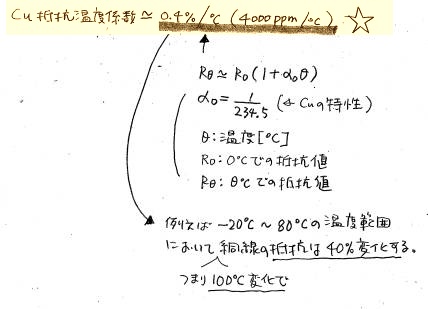 Cu 抵抗温度係数 ≃ 0.4%/℃ (4000ppm/℃) ☆
Rθ ≃ R₀(1+α₀θ)
α₀ = 1/234.5 (← Cuの特性)
θ: 温度[℃]
R₀: 0℃での抵抗値
Rθ: θ℃での抵抗値
例えば -20℃ ~ 80℃の温度範囲
において銅線の抵抗は40%変化する。
つまり100℃変化で